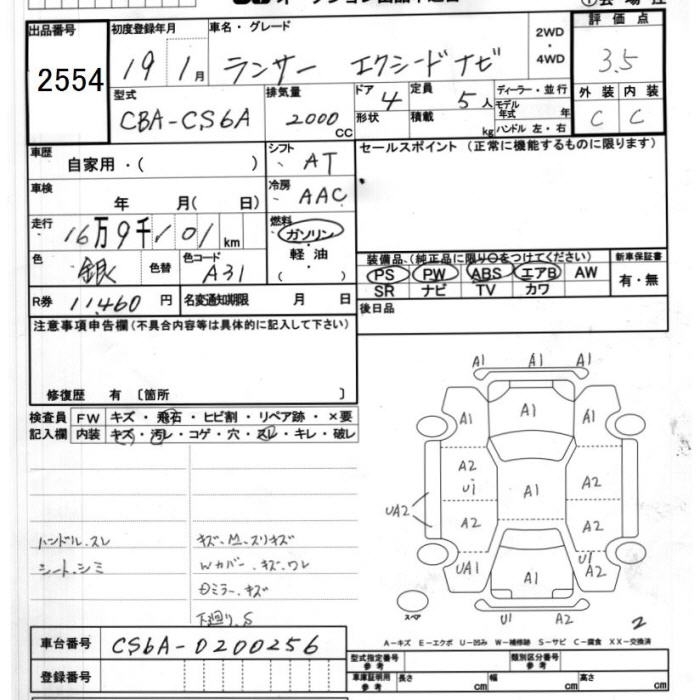 出品番号 2554
初度登録年月 19 1月
車名・グレード ランサー エクシードナビ
2WD・4WD
評価点 3.5
型式 CBA-CS6A
排気量 2000 CC
ドア 4
形状
定員 5人
積載 kg
ディーラー・並行
モデル年式 年
ハンドル 左・右
外装 内装
C C
車歴 自家用・( )
シフト AT
セールスポイント (正常に機能するものに限ります)
車検 年 月( 日)
冷房 AAC
走行 16万9千101km
燃料 ガソリン・軽油・( )
色 銀
色替
色コード A31
装備品 (純正品に限り○をつけてください)
新車保証書
PS PW ABS エアB AW
有・無
SR ナビ TV カワ
R券 11,460円
名変通知期限 月 日
後日品
注意事項申告欄(不具合内容等は具体的に記入して下さい)
修復歴 有 〔箇所 〕
検査員 FW キズ・飛石・ヒビ割・リペア跡・×要
記入欄 内装 キズ・汚レ・コゲ・穴・スレ・キレ・破レ
A1 A1 A1
A1 A1 A1
A2 U1 A2
A1
UA2 A2 A2
UA1 A1 U1 A2
スペア
U1 A2
2
ハンドル.スレ
シート.シミ
キズ.M.スリキズ
Wカバー.キズ.ワレ
Dミラー.キズ
下廻り.S
A-キズ E-エクボ U-凹み W-補修跡 S-サビ C-腐食 XX-交換済
車台番号 CS6A-0200256
登録番号
型式指定番号 参考
類別区分番号 参考
車庫証明用 参考 長さ cm 幅 cm 高さ cm